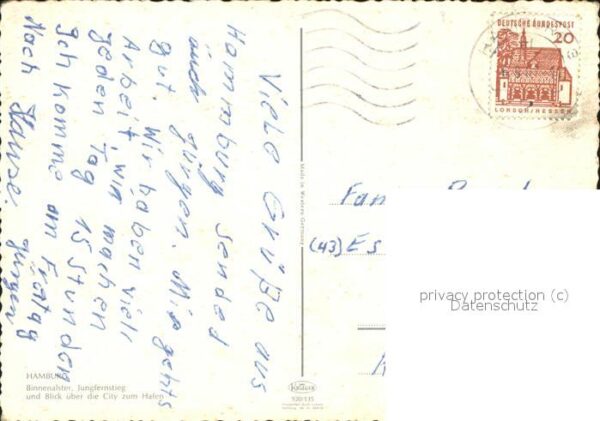 Viele Grüße aus
Hammburg sended
üuch gürgen. Mir gehts
gut. Wir haben viel
Arbeit, wir machen
jeden Tag 15 Stunden
Ich komme am Freitag
Nach Hause. gürgen
HAMBURG
Binnenalster, Jungfernstieg
und Blick über die City zum Hafen
Made in Western Germany
Krüger
920/135
DEUTSCHE BUNDESPOST
20
LORSCH/HESSEN
Fam
(43) Es
privacy protection (c)
Datenschutz